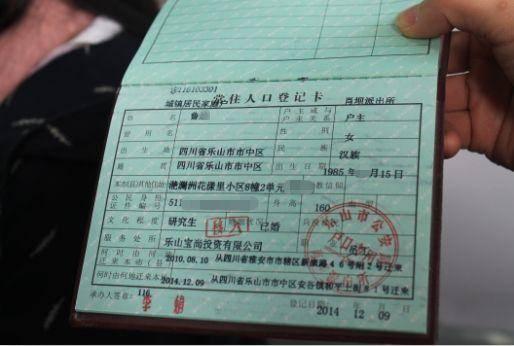 常住人口登记卡
城镇居民家庭户 肖坝派出所
姓名 鲁 户主或与户主关系 户主
曾用名 性别 女
出生地 四川省乐山市市中区 民族 汉族
籍贯 四川省乐山市市中区 出生日期 1985 月15日
滟澜洲花漾里小区8幢2单元
公民身份证件编号 511 身高 160
文化程度 研究生 已婚
服务处所 乐山宝尚投资有限公司
何时由何地迁来本市(县) 2010.08.10 从四川省雅安市市辖区新康路46号附2号迁来
何时由何地迁来本址 2014.12.09 从四川省乐山市市中区安谷镇和平上街81号迁来
承办人签章: 116 登记日期: 2014 12 09